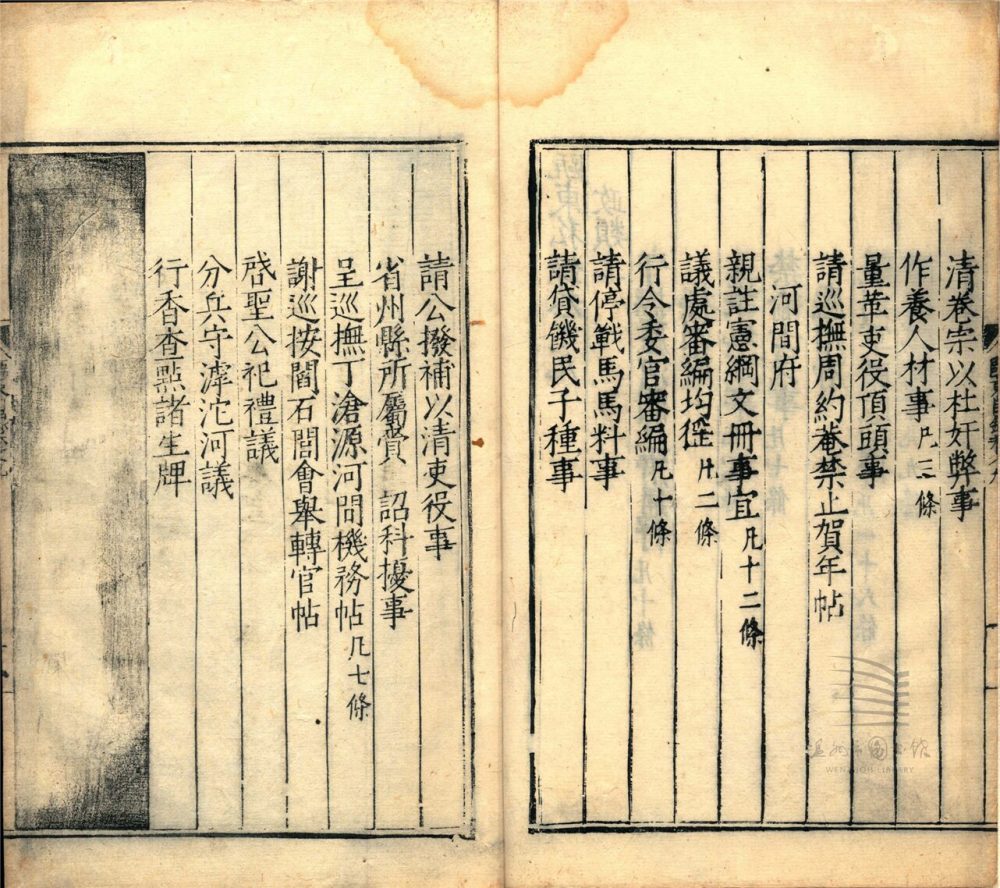 清卷宗以杜奸弊事
作養人材事 凡三條
量革吏役頂頭事
請巡撫周約菴禁止賀年帖
河間府
親註憲綱文冊事宜 凡十二條
議處審編均徭 凡二條
行令委官審編 凡十條
請停戰馬馬料事
請貸饑民子種事
請公撥補以清吏役事
省州縣所屬賞 詔科擾事
呈巡撫丁滄源河間機務帖 凡七條
謝巡按閻石閭會舉轉官帖
啓聖公祀禮議
分兵守滹沱河議
行香查點諸生牌
WENZHOU LIBRARY